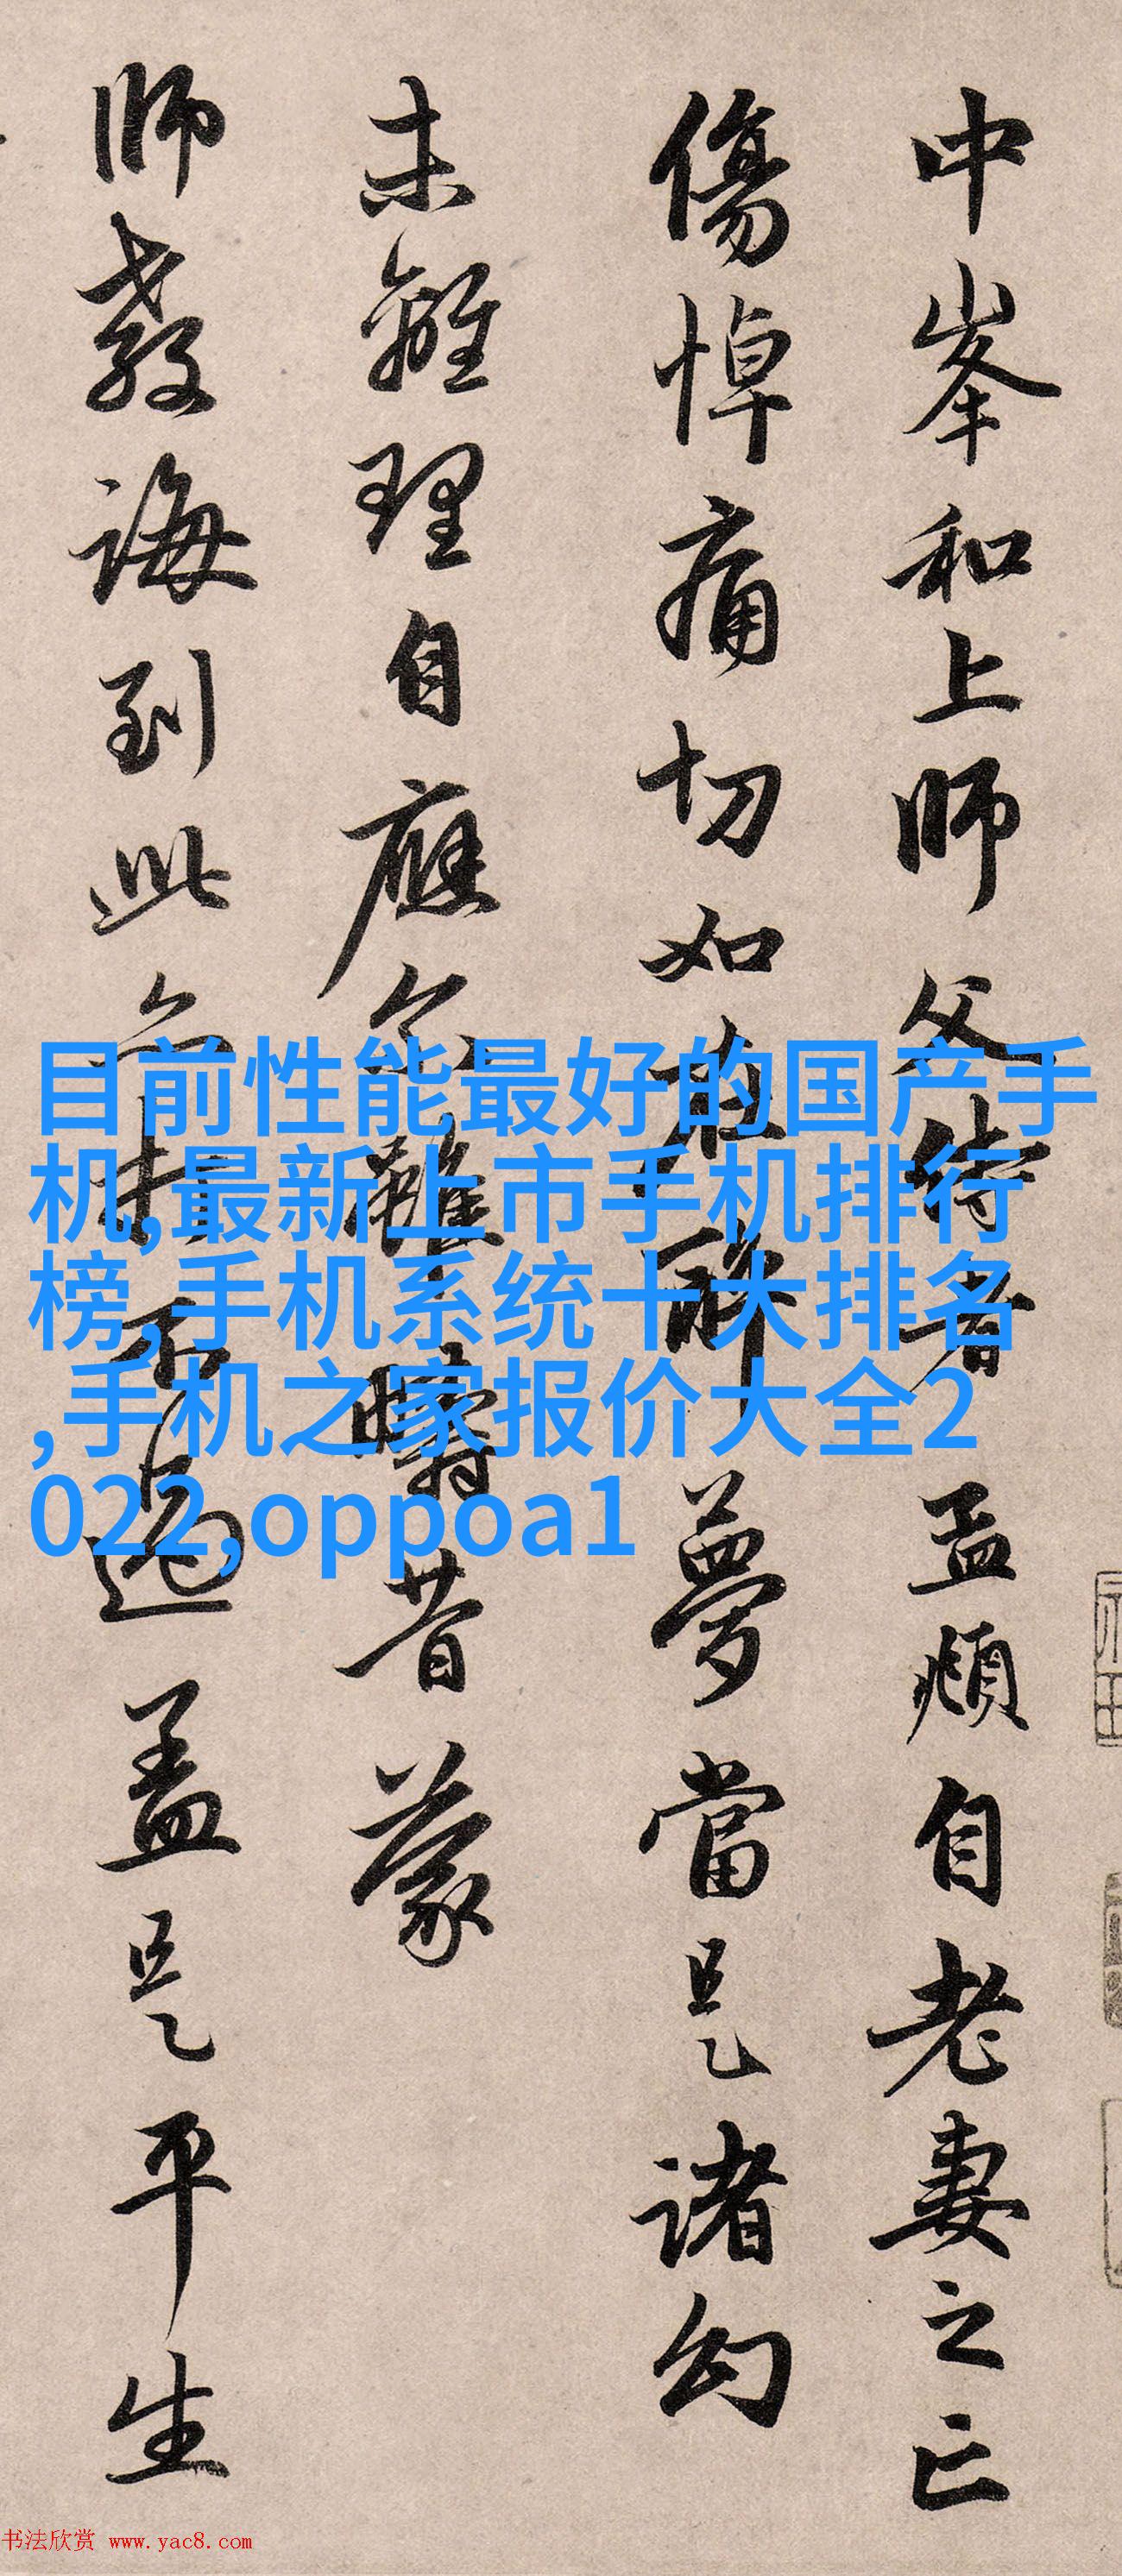 中峯和上師父侍者孟頫自老妻之亡
傷悼痛切如在醉夢當是諸幻
未離理自應尒雖畴昔蒙
師教誨到此亦打不過蓋是平生
目前性能最好的国产手
机,最新上市手机排行
榜,手机系统十大排名
,手机之家报价大全2
022,oppoa1
书法欣赏 www.yac8.com